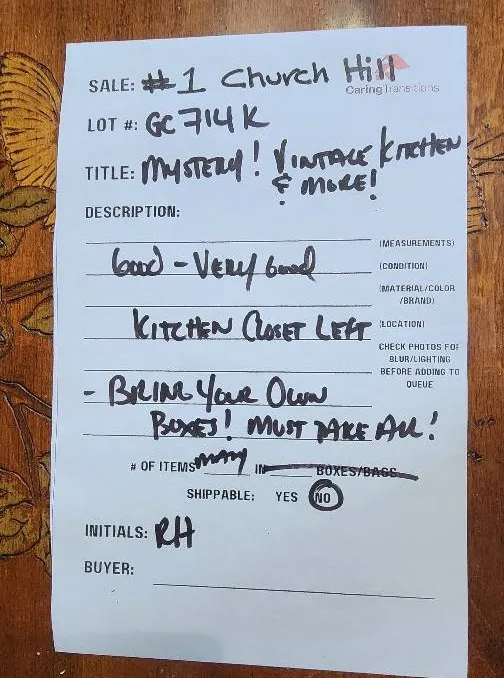 SALE: #1 Church Hill
CaringTransitions
LOT #: GC714K
TITLE: MYSTERY! VINTAGE KITCHEN
& MORE!
DESCRIPTION:
(MEASUREMENTS)
GOOD - VERY GOOD (CONDITION)
(MATERIAL/COLOR
/BRAND)
KITCHEN CLOSET LEFT (LOCATION)
CHECK PHOTOS FOR
BLUR/LIGHTING
BEFORE ADDING TO
QUEUE
- BRING YOUR OWN
BOXES! MUST TAKE ALL!
# OF ITEMS MANY IN BOXES/BAGS
SHIPPABLE: YES NO
INITIALS: RH
BUYER: